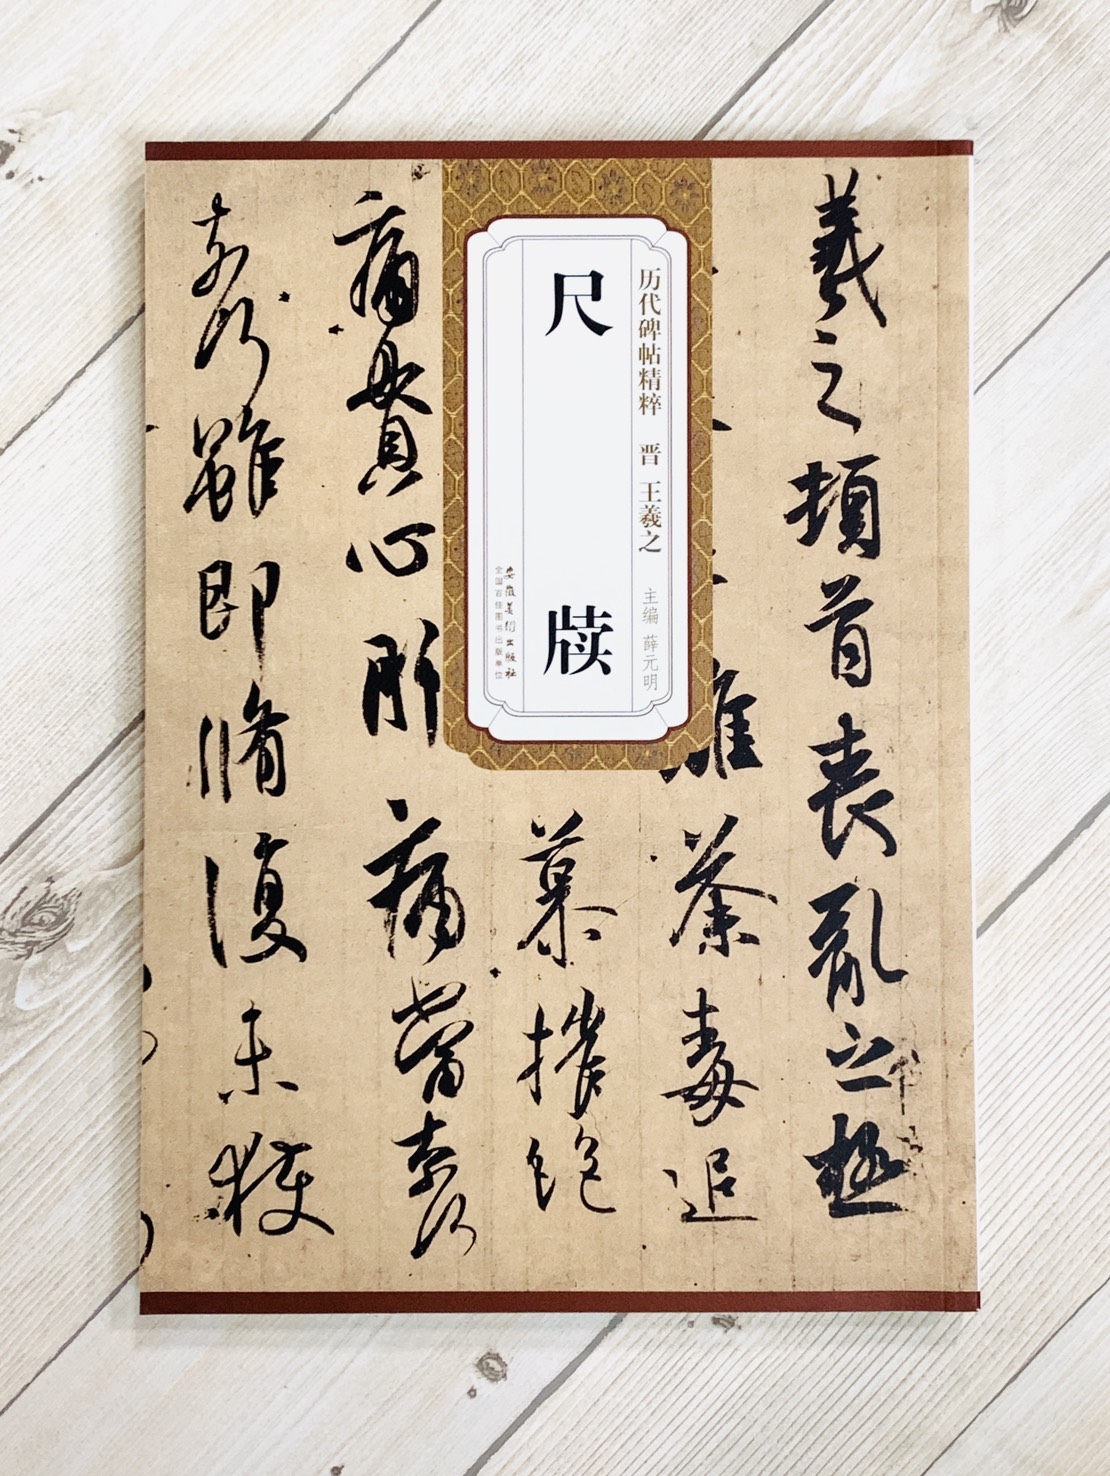 羲之頓首喪亂之極
離荼毒追
慕摧絕
痛貫心肝痛當奈何
奈何雖即脩復未獲
历代碑帖精粹 晋 王羲之 主编 薛元明
尺牍
安徽美术出版社
全国百佳图书出版单位